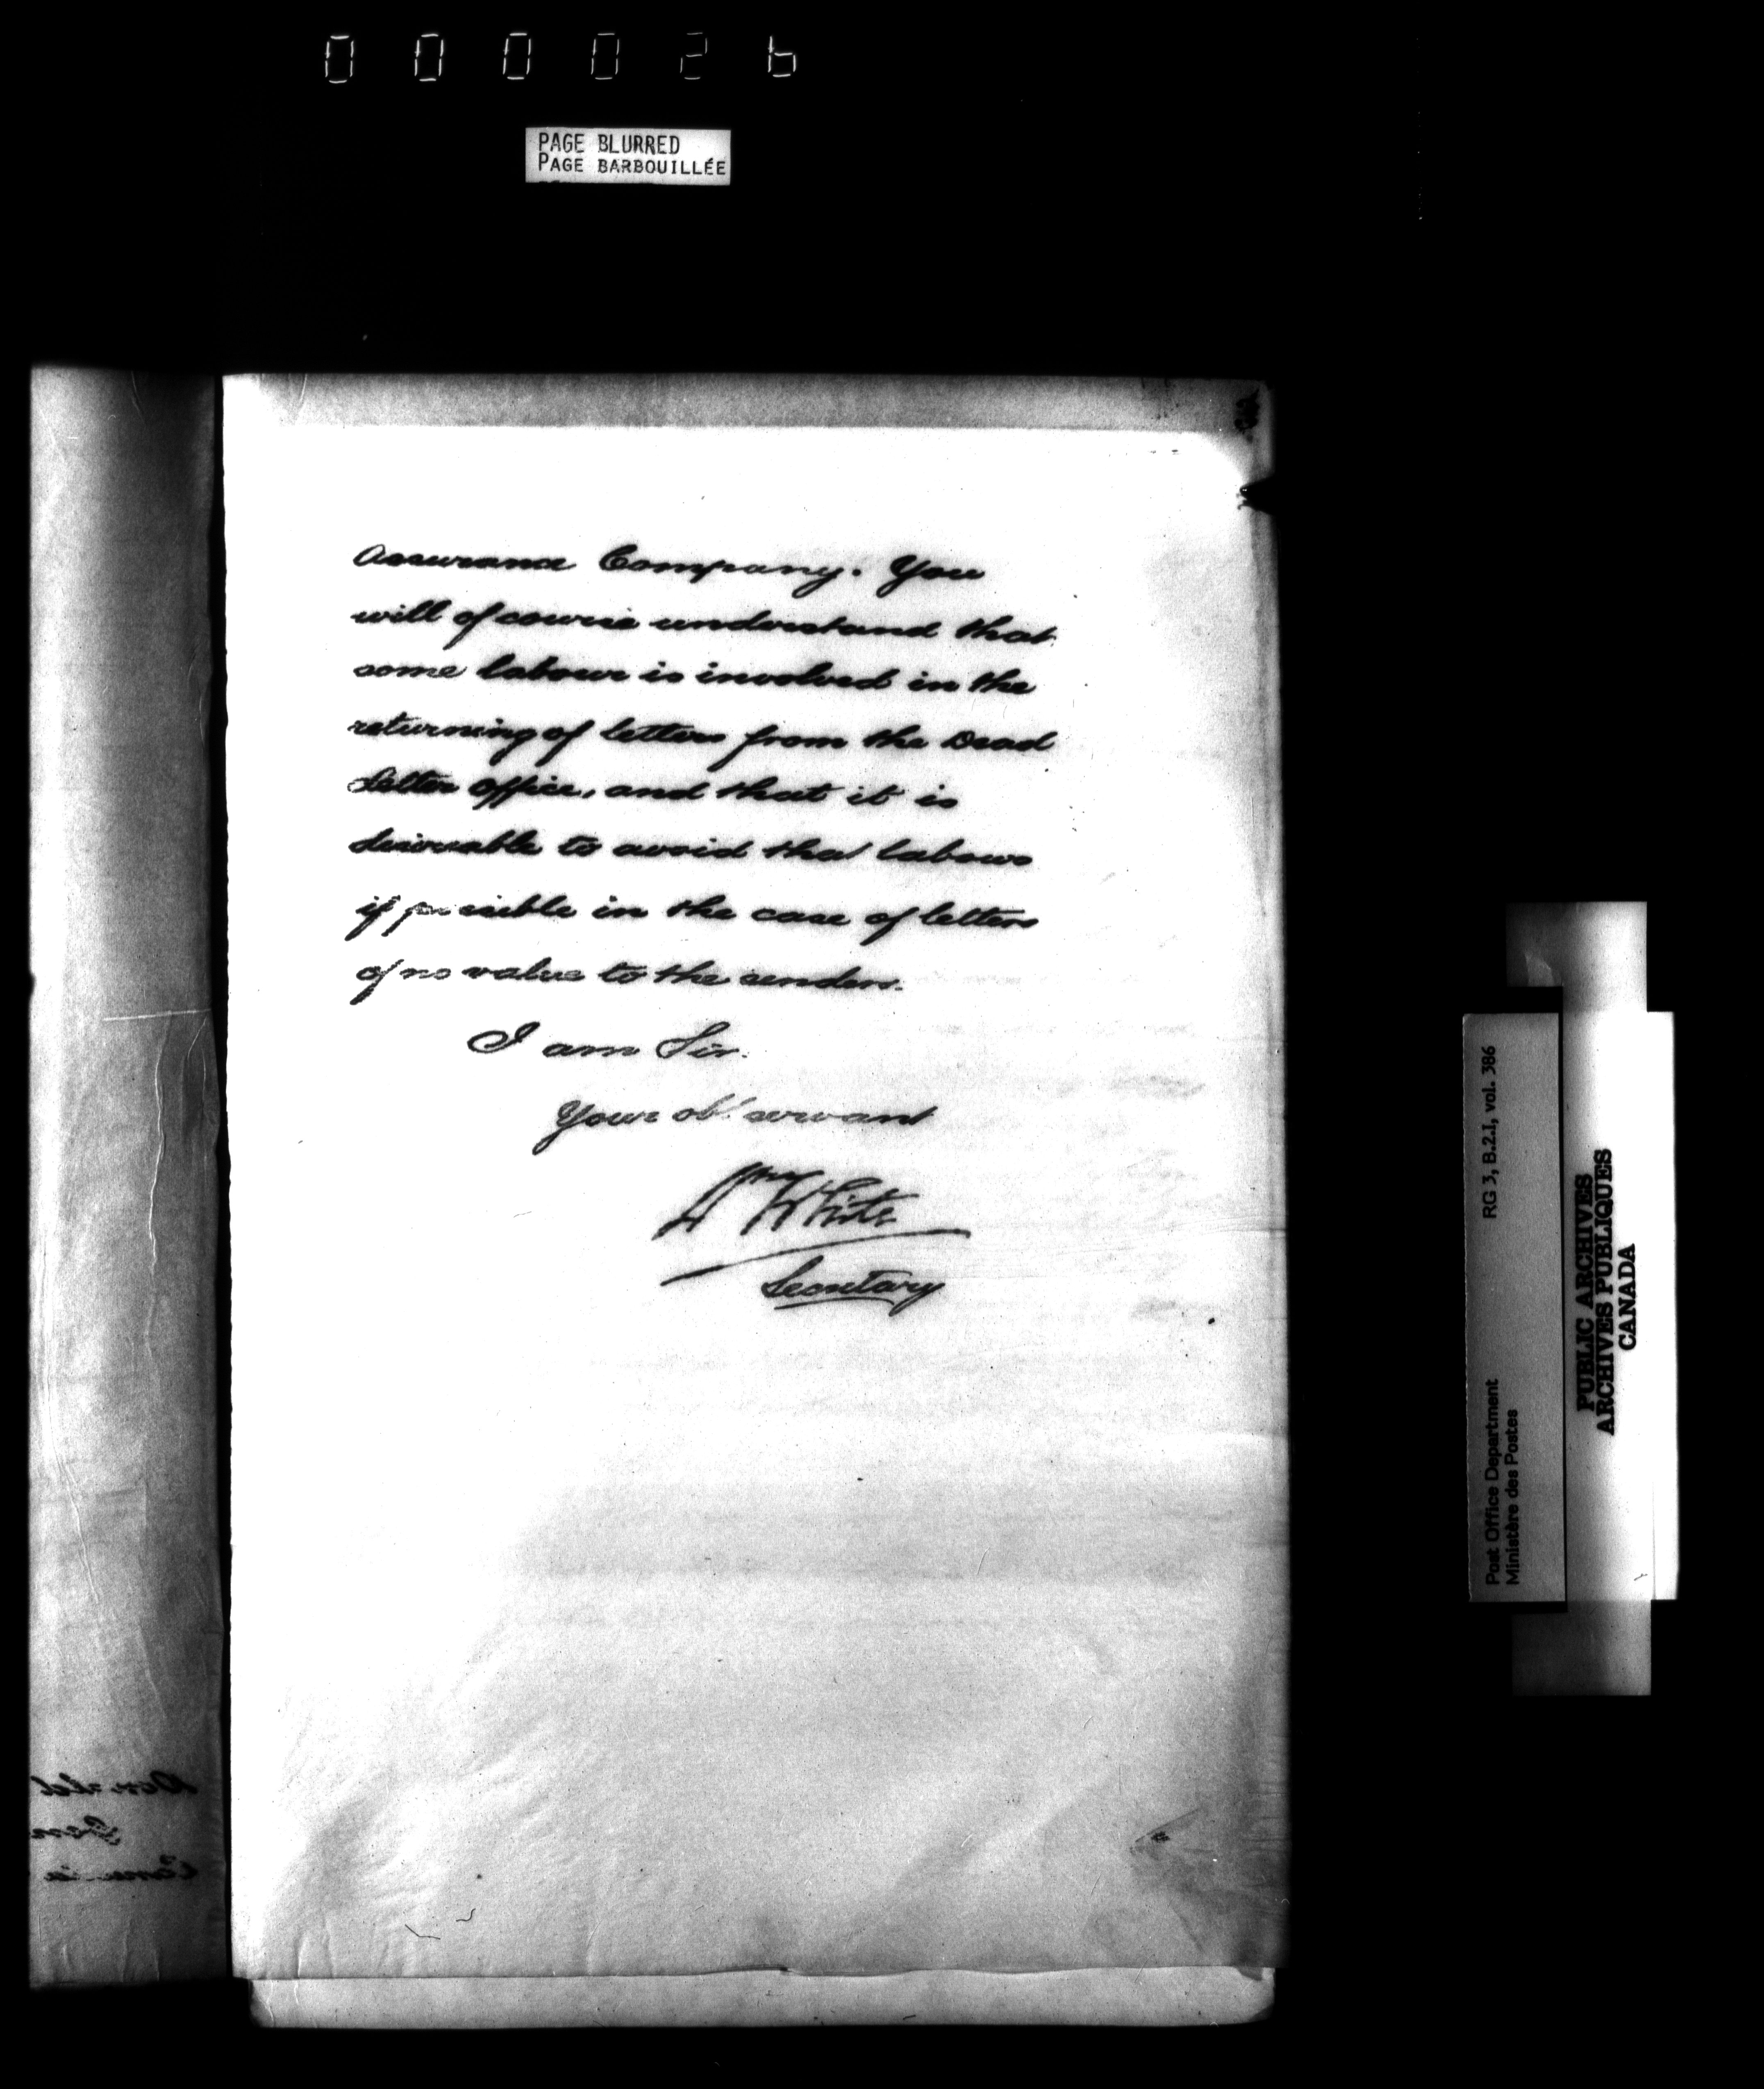 000026
PAGE BLURRED
PAGE BARBOUILLÉE
Assurance Company. You
will of course understand that
some labour is involved in the
returning of letters from the Dead
Letter Office, and that it is
desireable to avoid that labour
if possible in the case of letters
of no value to the senders.
I am Sir.
Your obt servant
Wm White
Secretary
RG 3, B.2.I, vol. 386
Post Office Department
Ministère des Postes
PUBLIC ARCHIVES
ARCHIVES PUBLIQUES
CANADA